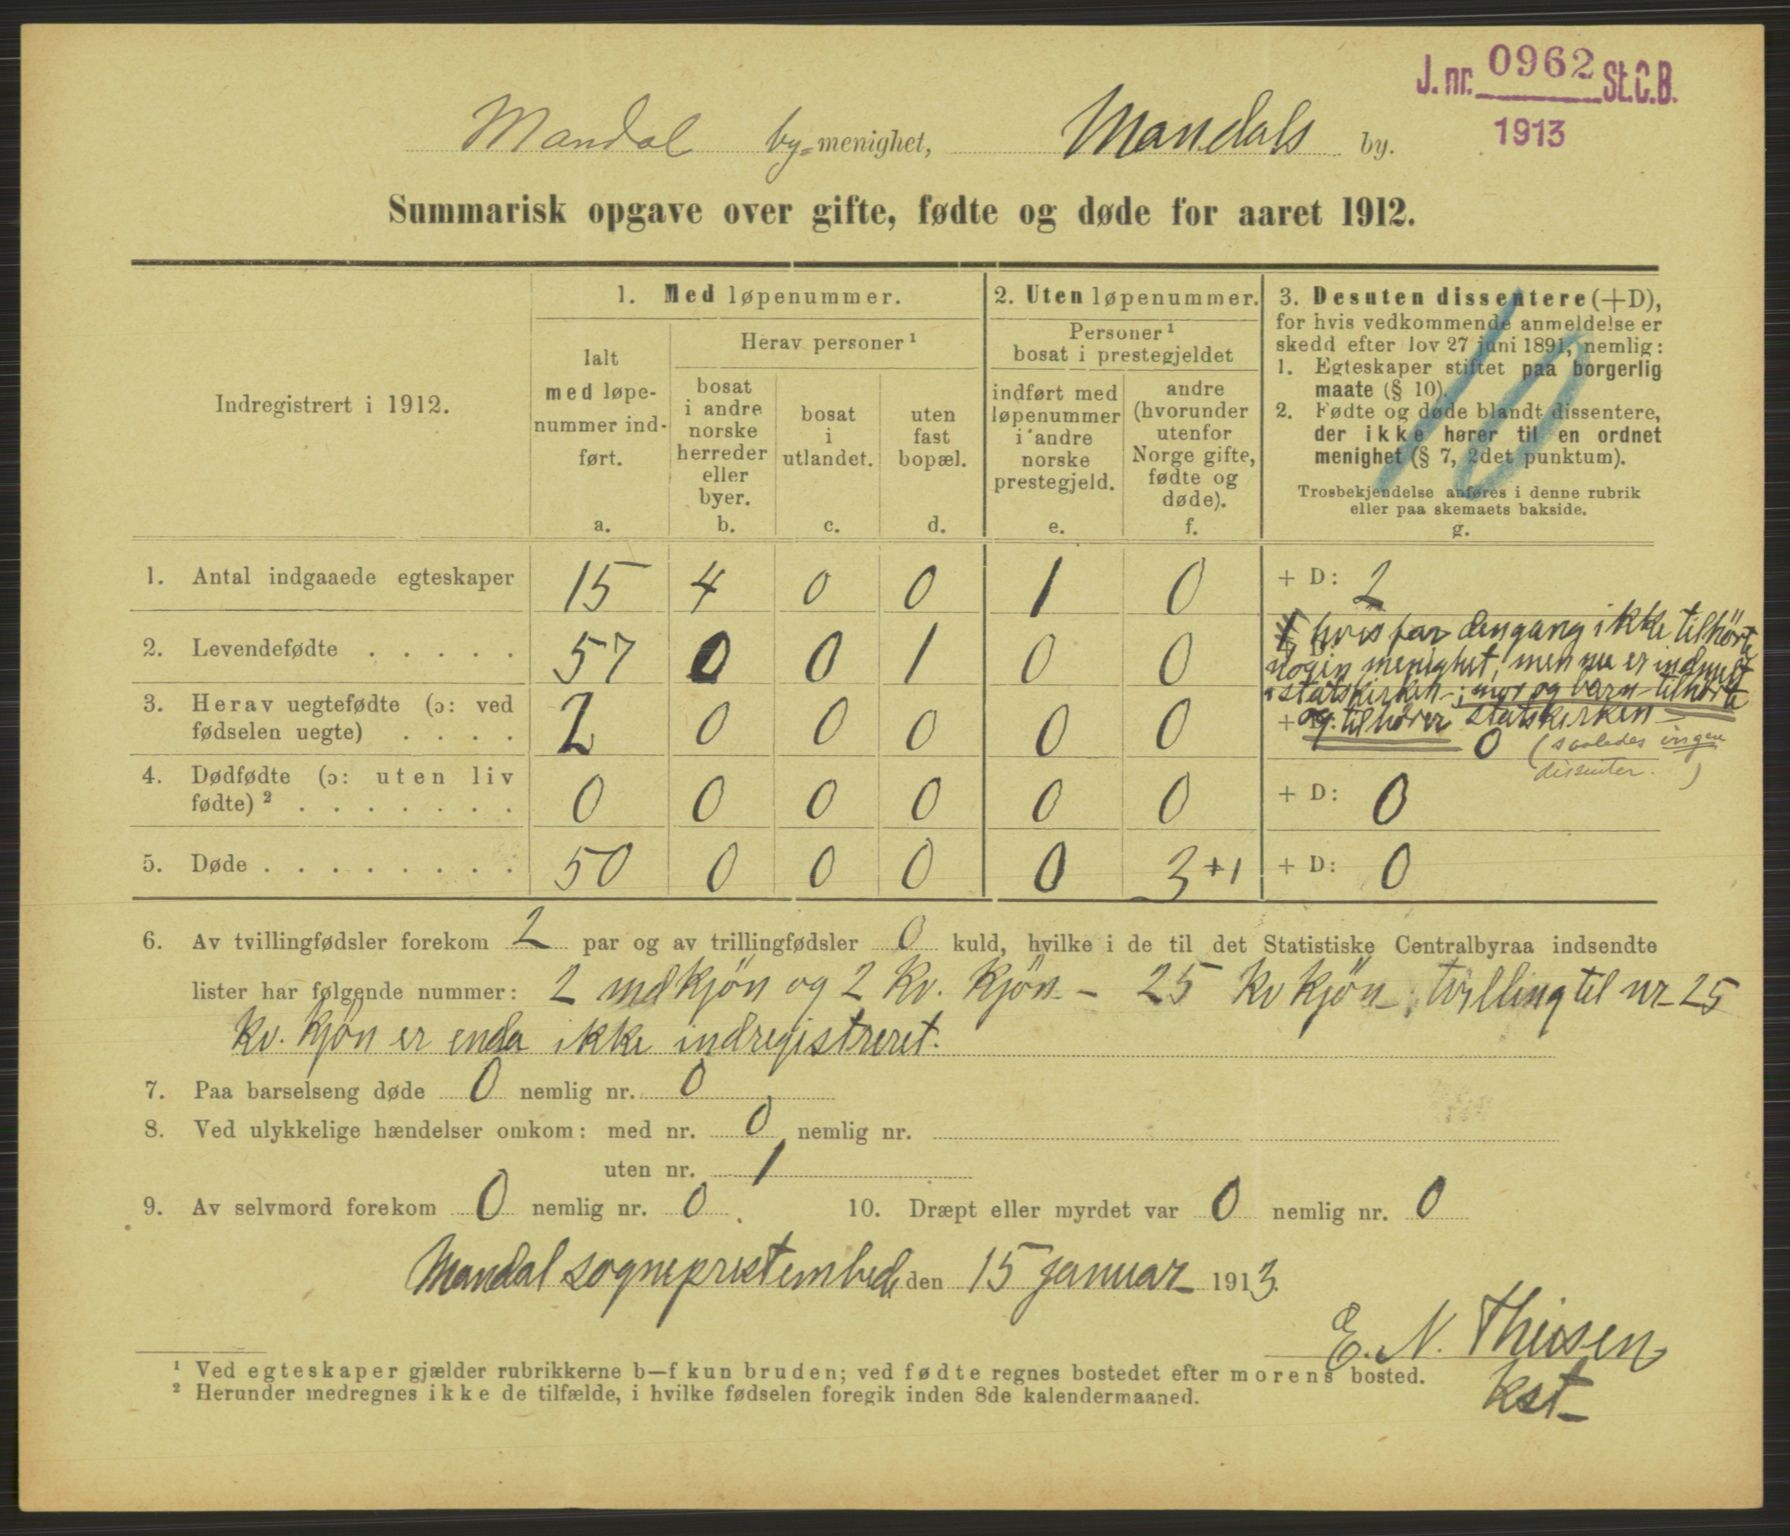 J. nr. 0962 St. C. B.
1913
Mandal by=menighet, Mandals by.
Summarisk opgave over gifte, fødte og døde for aaret 1912.
Indregistrert i 1912.
1. Med løpenummer.
Ialt
med løpe-
nummer ind-
ført.
a.
Herav personer ¹
bosat
i andre
norske
herreder
eller
byer.
b.
bosat
i
utlandet.
c.
uten
fast
bopæl.
d.
2. Uten løpenummer.
Personer ¹
bosat i prestegjeldet
indført med
løpenummer
i andre
norske
prestegjeld.
e.
andre
(hvorunder
utenfor
Norge gifte,
fødte og
døde).
f.
3. Desuten dissentere (+D),
for hvis vedkommende anmeldelse er
skedd efter lov 27 juni 1891, nemlig:
1. Egteskaper stiftet paa borgerlig
maate (§ 10).
2. Fødte og døde blandt dissentere,
der ikke hører til en ordnet
menighet (§ 7, 2det punktum).
Trosbekjendelse anføres i denne rubrik
eller paa skemaets bakside.
g.
10
1. Antal indgaaede egteskaper 15 4 0 0 1 0 + D: 2
2. Levendefødte . . . . . 57 0 0 1 0 0
1 hvis far dengang ikke tilhörte
nogen menighet, men nu er indmeldt
i statskirken; mor og barn tilhörte
og tilhører statskirken
3. Herav uegtefødte (ɔ: ved
fødselen uegte) . . . . 2 0 0 0 0 0 + 0
(saaledes ingen
dissenter.)
4. Dødfødte (ɔ: uten liv
fødte) ² . . . . . . . 0 0 0 0 0 0 + D: 0
5. Døde . . . . . . . . 50 0 0 0 0 3+1 + D: 0
6. Av tvillingfødsler forekom 2 par og av trillingfødsler 0 kuld, hvilke i de til det Statistiske Centralbyraa indsendte
lister har følgende nummer: 2 mdkjön og 2 kv. kjön - 25 kv kjön; tvilling til nr 25
kv. kjön er enda ikke indregistreret.
7. Paa barselseng døde 0 nemlig nr. 0
8. Ved ulykkelige hændelser omkom: med nr. 0 nemlig nr.
uten nr. 1
9. Av selvmord forekom 0 nemlig nr. 0. 10. Dræpt eller myrdet var 0 nemlig nr. 0
Mandal sogneprestembede den 15 januar 1913.
E. N. Thiisen
kst
¹ Ved egteskaper gjælder rubrikkerne b—f kun bruden; ved fødte regnes bostedet efter morens bosted.
² Herunder medregnes ikke de tilfælde, i hvilke fødselen foregik inden 8de kalendermaaned.